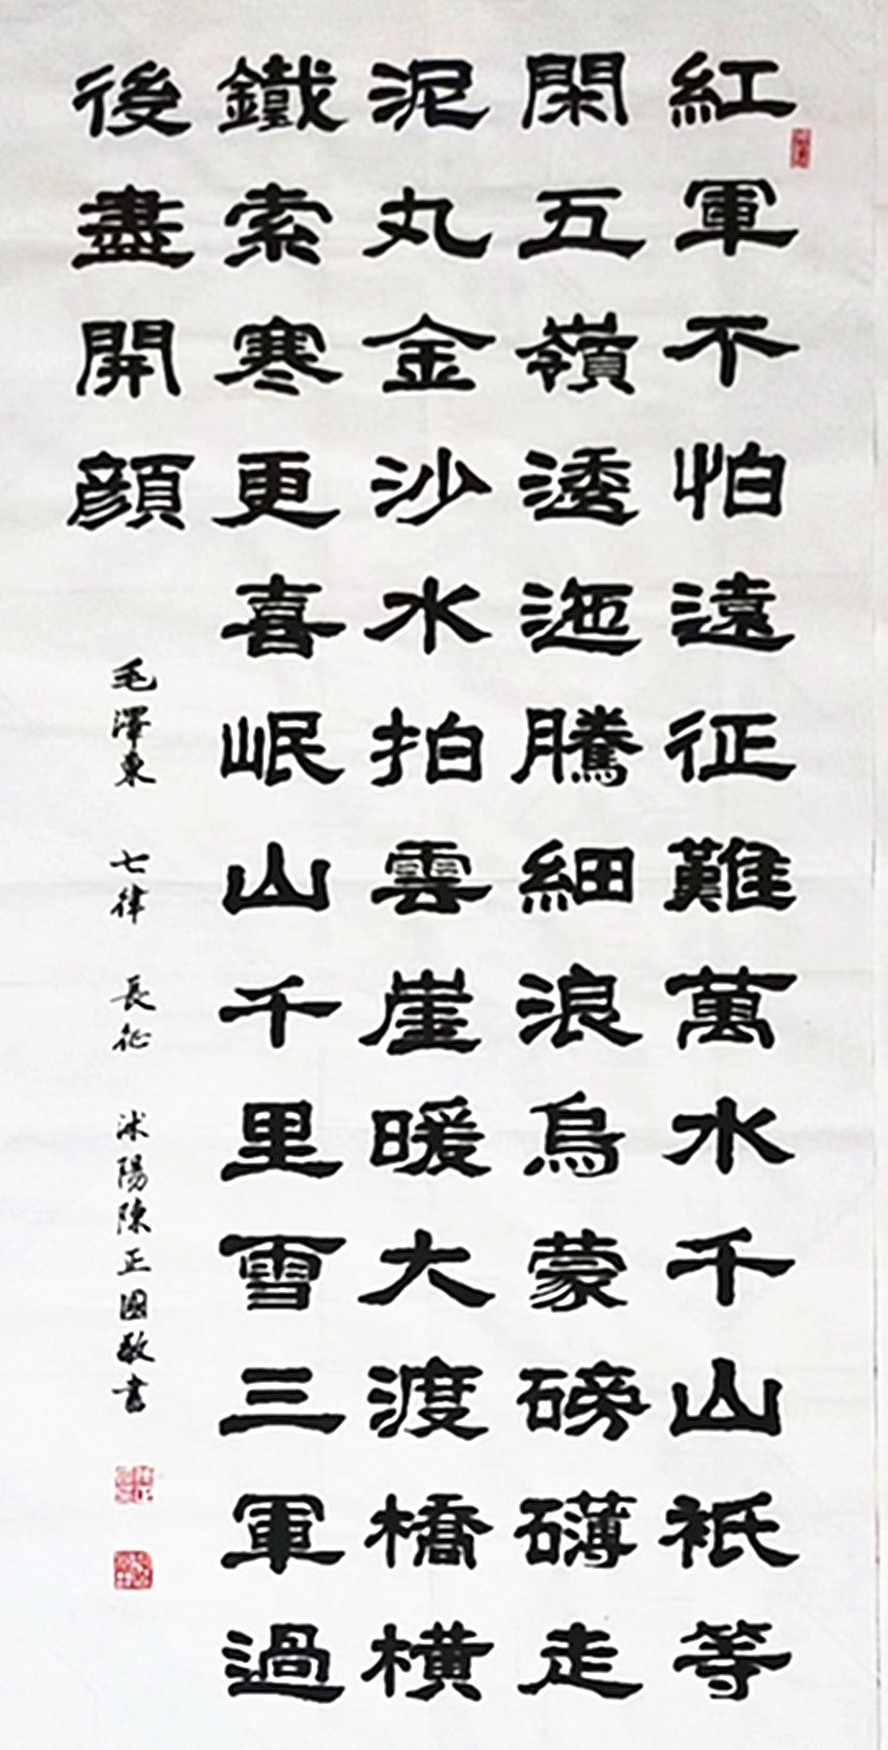 紅軍不怕遠征難萬水千山祇等
閑五嶺逶迤騰細浪烏蒙磅礴走
泥丸金沙水拍雲崖暖大渡橋橫
鐵索寒更喜岷山千里雪三軍過
後盡開顔
毛澤東 七律 長征 沭陽陳正國敬書